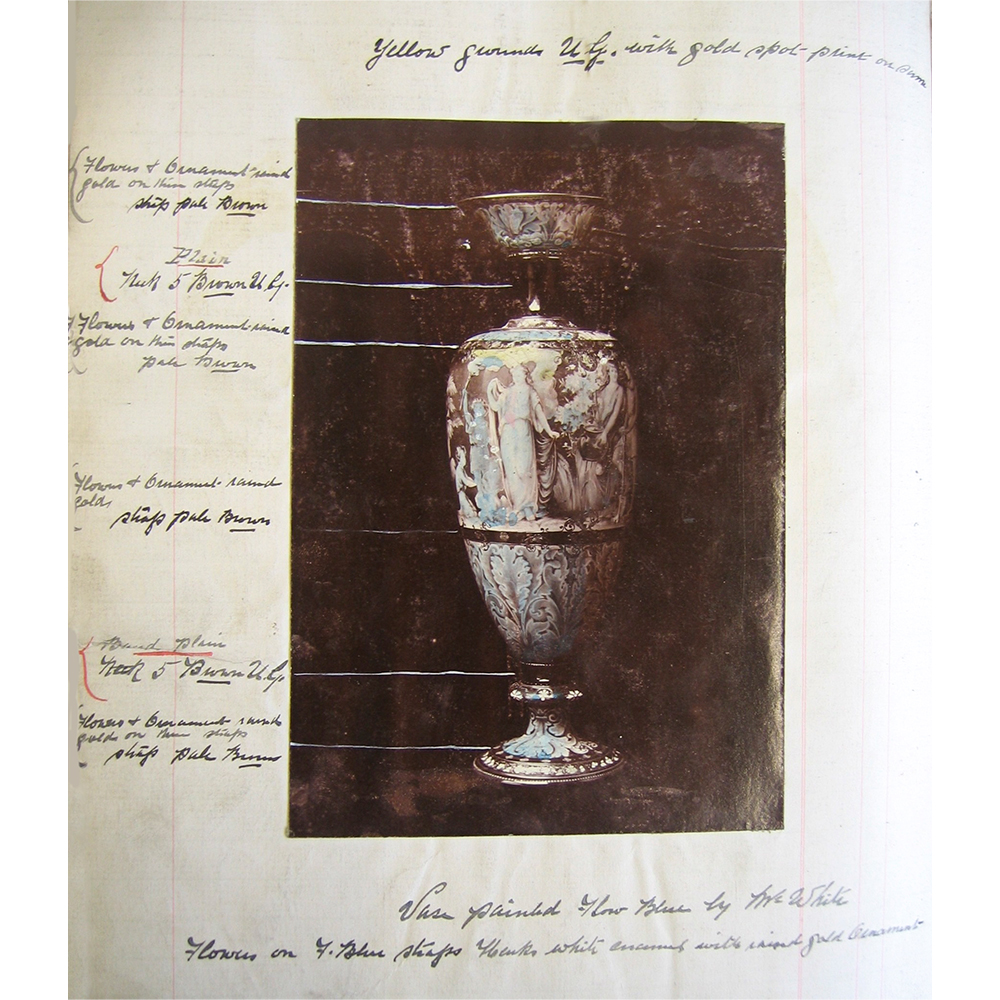 Yellow grounds U.G. with gold spot print on Brown
Flowers & Ornament raised
gold on thin straps
straps pale Brown
Plain
Neck 5 Brown U.G.
Flowers & Ornament raised
gold on thin straps
pale Brown
Flowers & Ornament raised
golds
straps pale Brown
Band plain
Neck 5 Brown U.G.
Flowers & Ornament raised
golds on thin straps
straps pale Brown
Vase painted Flow Blue by Mr White
Flowers on F. Blue straps white enamel with raised gold Ornament